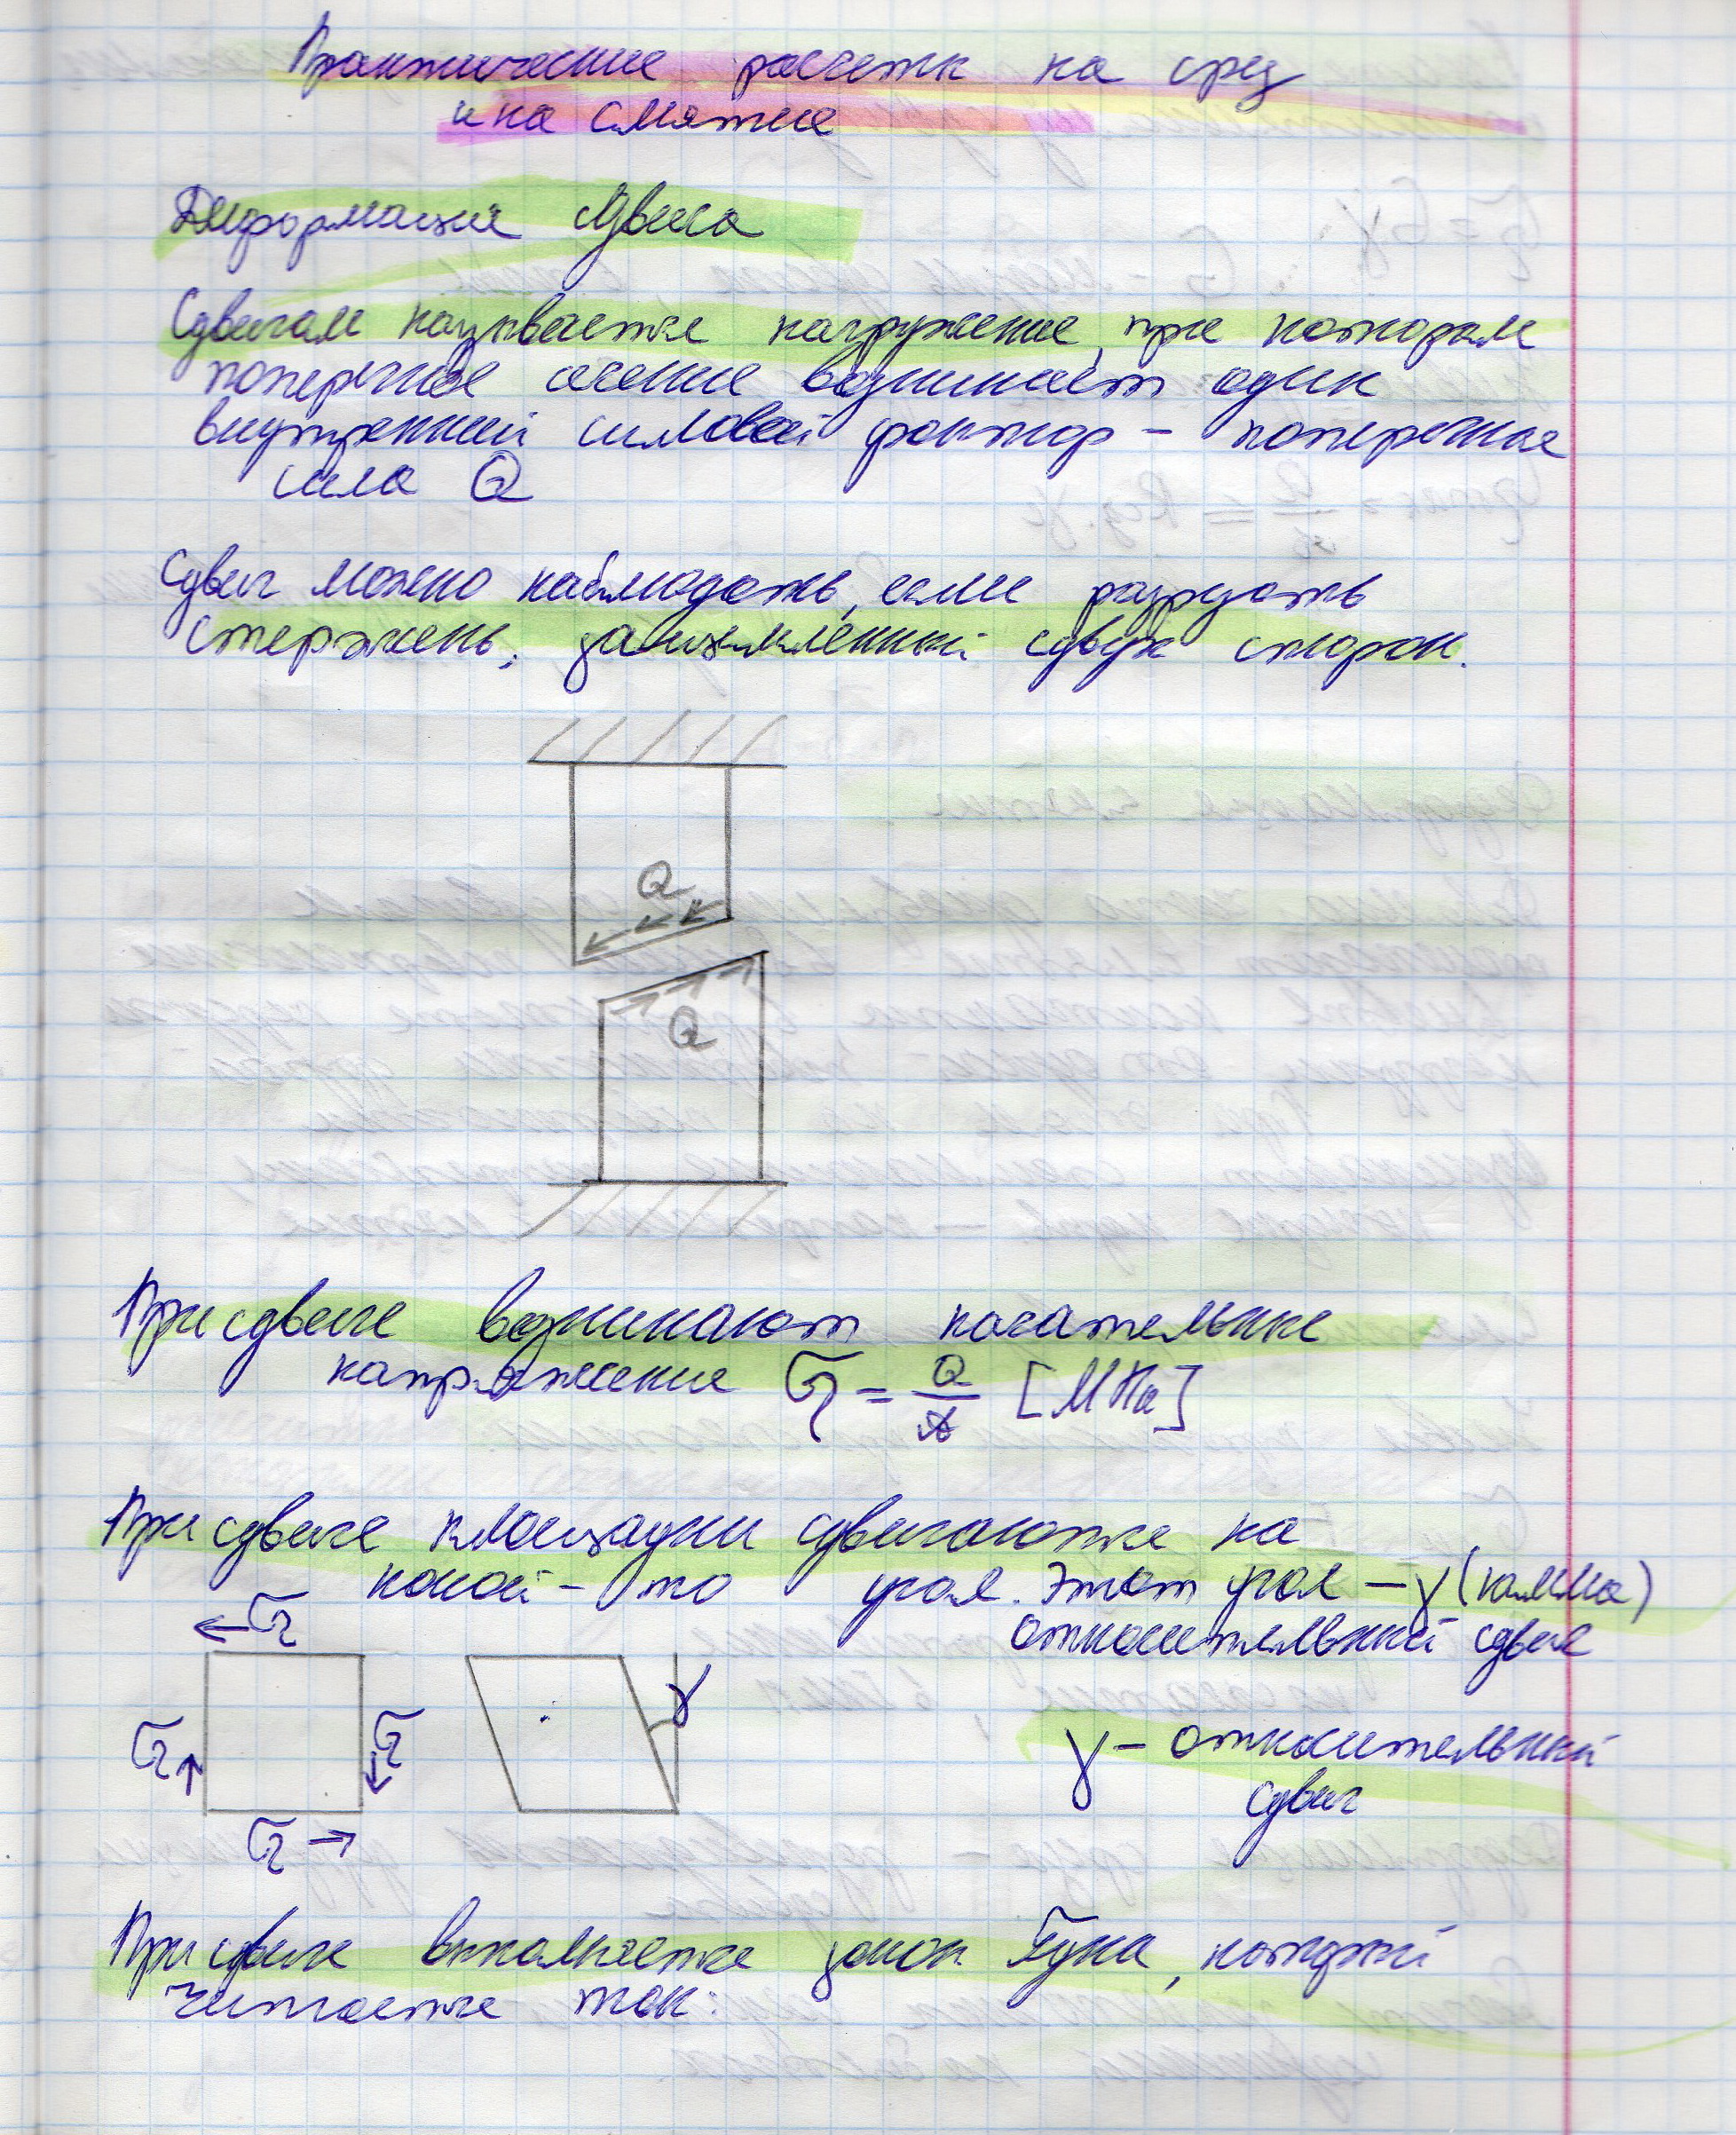 Практические расчеты на срез
и на смятие
Деформация сдвига
Сдвигом называется нагружение, при котором
поперечное сечение возникает один
внутренний силовой фактор – поперечная
сила Q
Сдвиг можно наблюдать, если разрезать
стержень, защемленный с двух сторон.
Q
Q
При сдвиге возникают касательные
напряжения τ = Q/A [МПа]
При сдвиге площадки сдвигаются на
какой-то угол. Этот угол – γ (гамма)
относительный сдвиг
τ
τ
τ
τ
γ
γ – относительный
сдвиг
При сдвиге выполняется закон Гука, который
читается так: